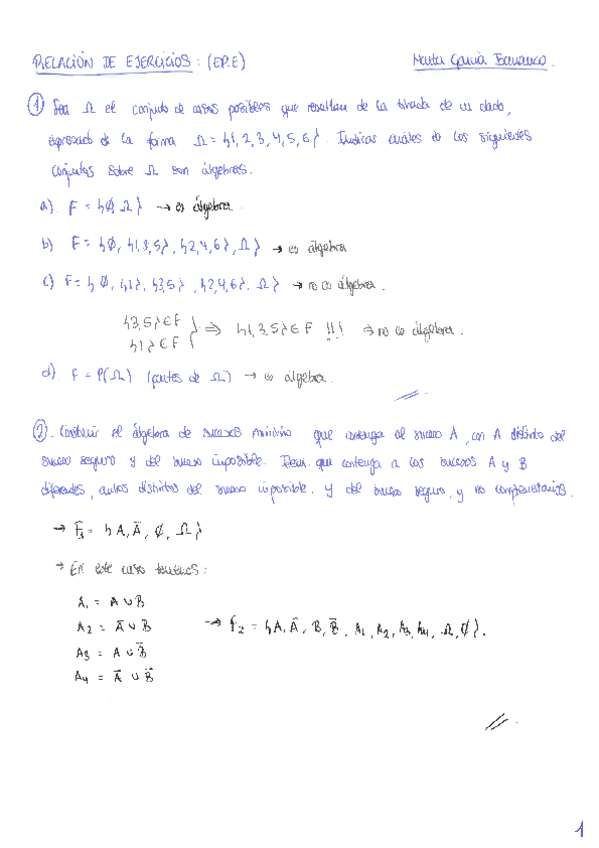 RELACIÓN DE EJERCICIOS: (EP.E) Marta García
① Sea Ω el conjunto de casos posibles que resultan de la tirada de un dado,
expresado de la forma Ω = {1, 2, 3, 4, 5, 6}. Indicar cuáles de los siguientes
conjuntos sobre Ω son álgebras.
a) F = {∅, Ω} → es álgebra
b) F = {∅, {1,3,5}, {2,4,6}, Ω} → es álgebra
c) F = {∅, {1}, {3,5}, {2,4,6}, Ω} → no es álgebra.
{3,5} ∈ F
{1} ∈ F } ⇒ {1,3,5} ∈ F !!! ⇒ no es álgebra.
d) F = P(Ω) (partes de Ω) → es álgebra.
② Construir el álgebra de sucesos mínimo que contenga al suceso A, con A distinto del
suceso seguro y del suceso imposible. Idem que contenga a los sucesos A y B
diferentes, ambos distintos del suceso imposible y del suceso seguro, y no complementarios.
→ F₁ = {A, Ā, ∅, Ω}
→ En este caso tenemos:
A₁ = A ∪ B
A₂ = Ā ∪ B
A₃ = A ∪ B̄
A₄ = Ā ∪ B̄
→ F₂ = {A, Ā, B, B̄, A₁, A₂, A₃, A₄, Ω, ∅}.
1